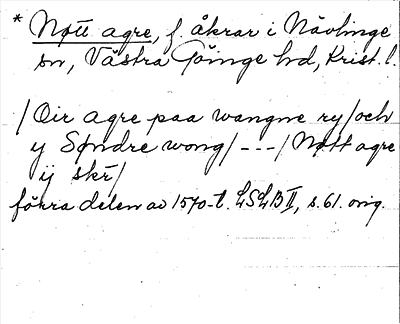 * Nøtt agre, f. åkrar i Nävlinge
sn, Västra Göinge hd, Krist. l.
/Oir agre paa wangne ry/och
y Søndre wong/ - - - /Nøtt agre
ij skr/
förra delen av 1570-t. LSLB II, s. 61. orig.